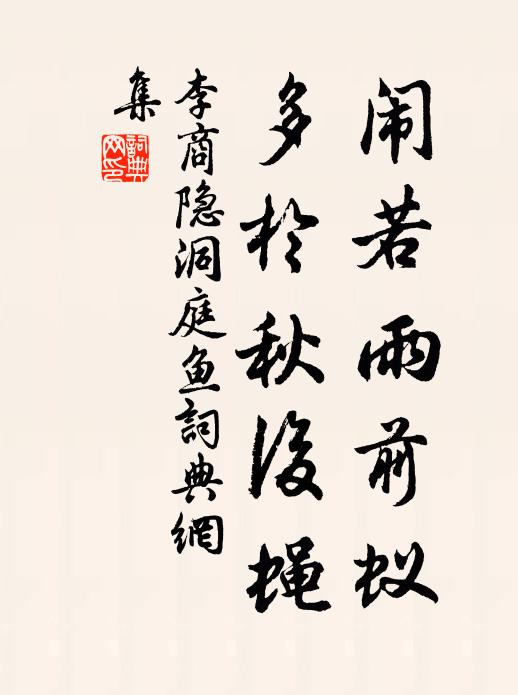 闹若雨前蚁
多於秋後蝇
李商隐洞庭鱼詞典網
集
詞典网印